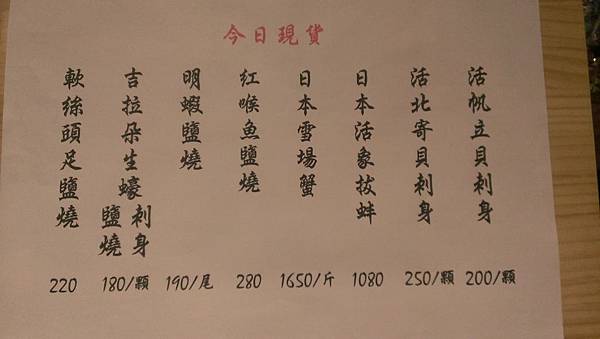 今日現貨
活帆立貝刺身
200/顆
活北寄貝刺身
250/顆
日本活象拔蚌
1080
日本雪場蟹
1650/斤
紅喉魚鹽燒
280
明蝦鹽燒
190/尾
吉拉朵生蠔刺身
鹽燒
180/顆
軟絲頭足鹽燒
220